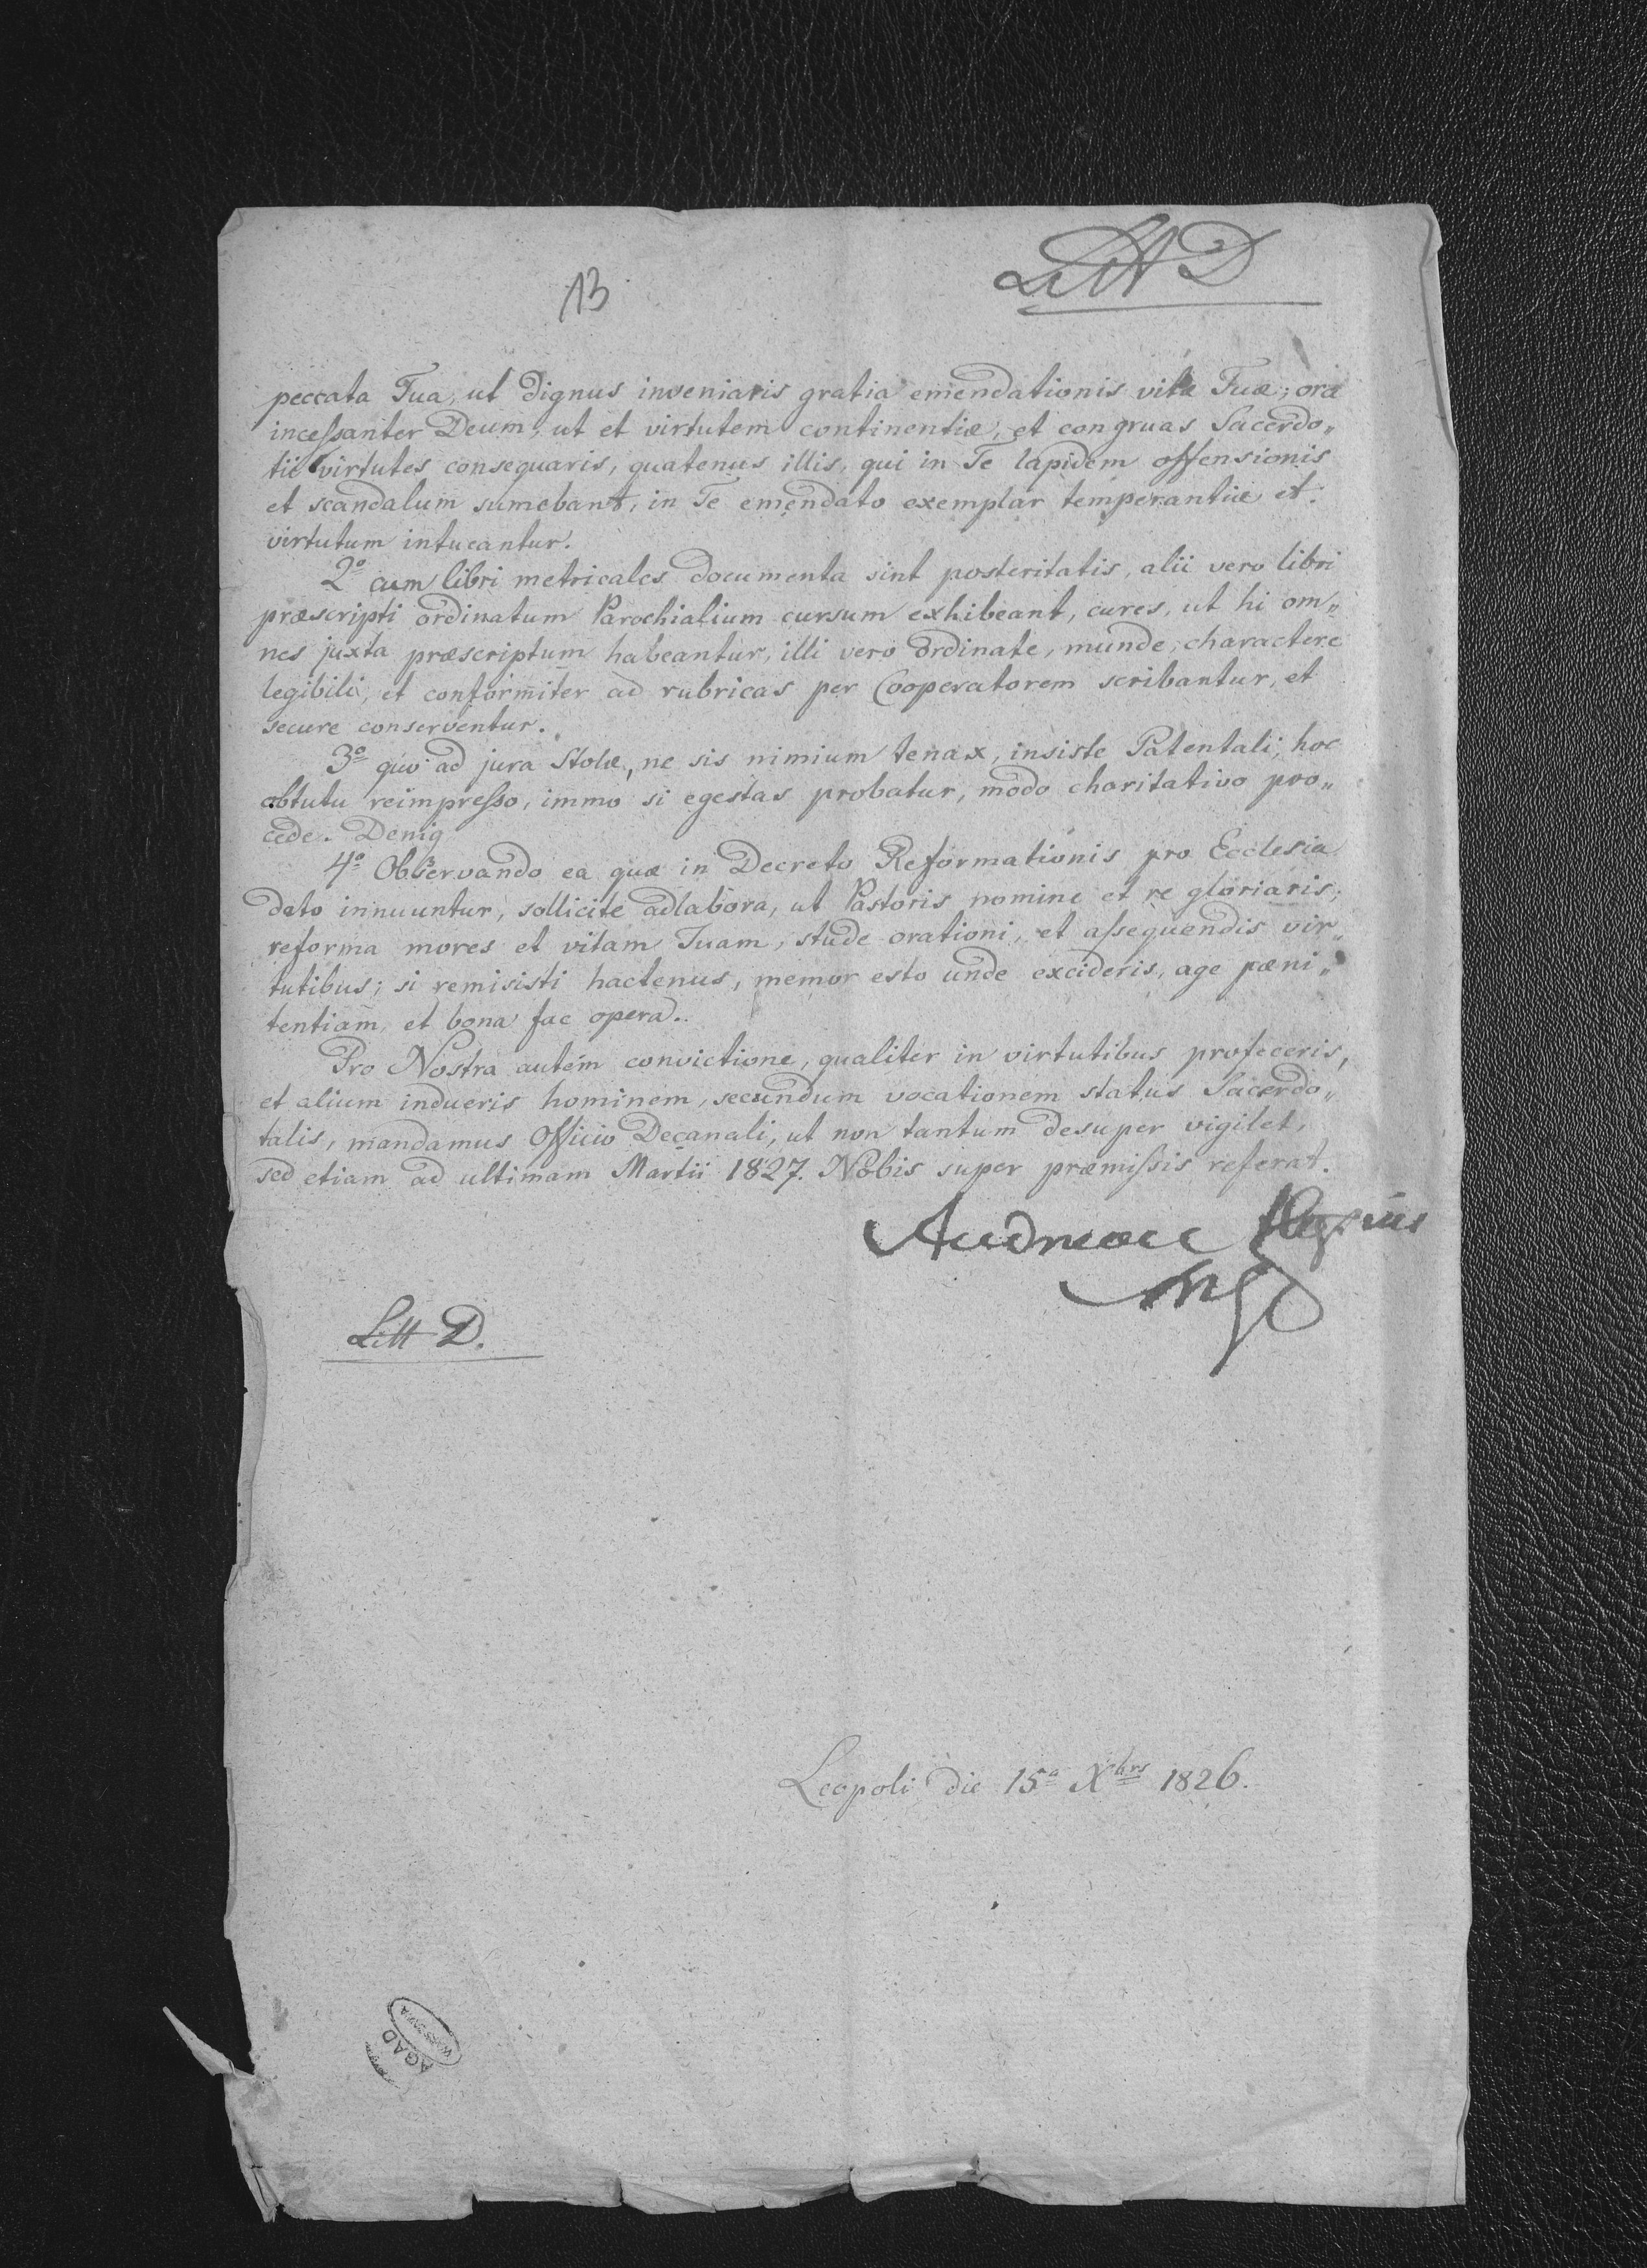 Litt D
13
peccata Tua, ut dignus inveniaris gratia emendationis vitæ Tuæ; ora
incessanter Deum, ut et virtutem continentiæ, et congruas Sacerdo„
tii virtutes consequaris, quatenus illis, qui in Te lapidem offensionis
et scandalum sumebant, in Te emendato exemplar temperantiæ et
virtutum intueantur.
2º cum libri metricales documenta sint posteritatis, alii vero libri
præscripti ordinatum Parochialium cursum exhibeant, cures, ut hi om„
nes juxta præscriptum habeantur, illi vero ordinate, munde, charactere
legibili, et conformiter ad rubricas per Cooperatorem scribantur, et
secure conserventur.
3º quo ad jura Stolæ, ne sis nimium tenax, insiste Patentali, hoc
obtutu reimpresso, immo si egestas probatur, modo charitativo pro„
cede. Deniq
4º Observando ea quæ in Decreto Reformationis pro Ecclesia
dato innuuntur, sollicite adlabora, ut Pastoris nomine et re gloriaris;
reforma mores et vitam Tuam, stude orationi, et assequendis vir„
tutibus; si remisisti hactenus, memor esto unde excideris, age pœni„
tentiam, et bona fac opera.
Pro Nostra autem convictione, qualiter in virtutibus profeceris,
et alium indueris hominem, secundum vocationem status Sacerdo„
talis, mandamus Officio Decanali, ut non tantum desuper vigilet,
sed etiam ad ultimam Martii 1827. Nobis super præmissis referat.
Litt D.
Leopoli die 15ª Xbris 1826.
AGAD